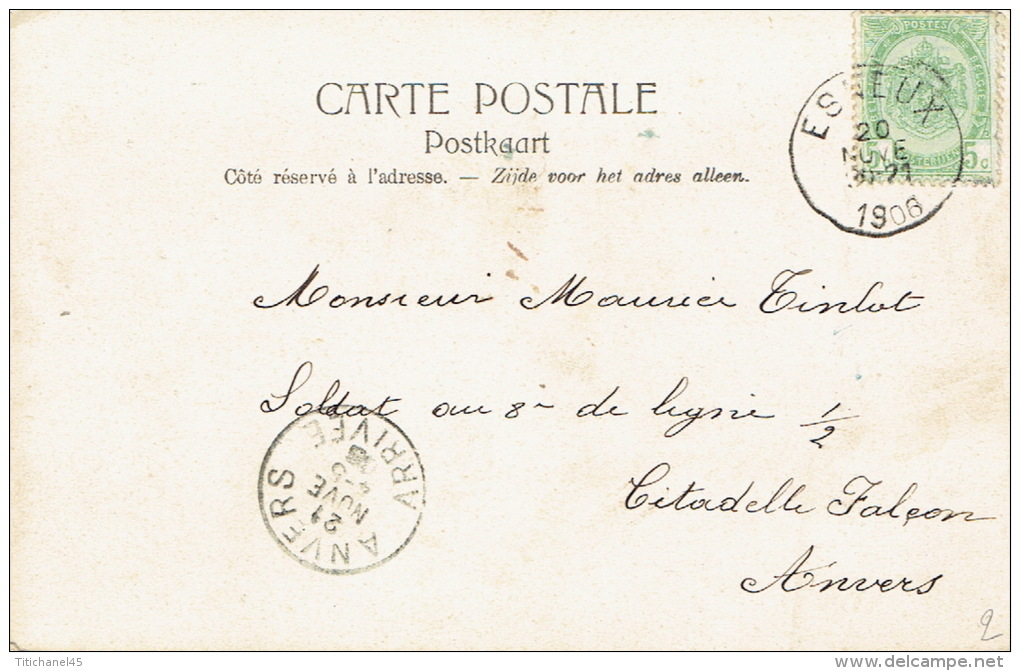 POSTES
CARTE POSTALE
Postkaart
Côté réservé à l'adresse. — Zijde voor het adres alleen.
ESNEUX
20
NOVE
20-21
1906
5 5 c
Monsieur Maurice Tinlot
Soldat au 8e de ligne 1/2
Citadelle Falçon
Anvers
ANVERS
21
NOVE
ARRIVÉE
2
Titichanel45
delcampe.net